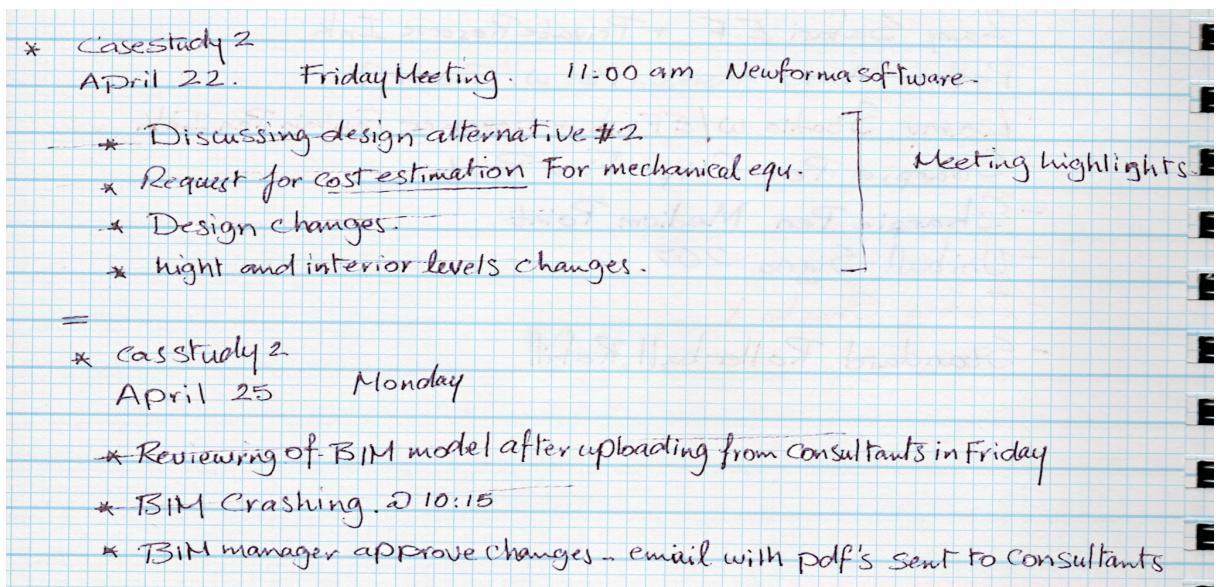 * Casestudy 2
April 22. Friday Meeting. 11:00 am Newforma software.
* Discussing design alternative #2
* Request for cost estimation For mechanical equ.
Meeting highlights.
* Design changes.
* hight and interior levels changes.
=
* casstudy 2
April 25 Monday
* Reviewing of BIM model after uploading from consultants in Friday
* BIM Crashing. @ 10:15
* BIM manager approve changes.. email with pdf's sent to consultants